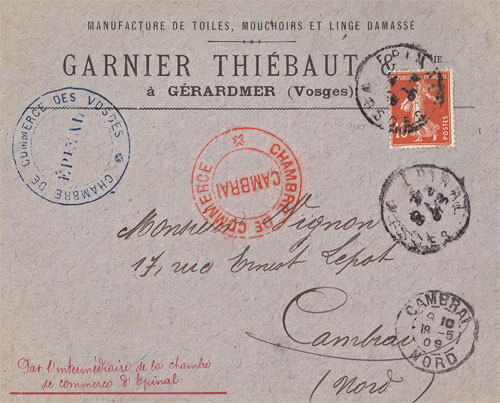 MANUFACTURE DE TOILES, MOUCHOIRS ET LINGE DAMASSÉ
GARNIER THIÉBAUT
à GÉRARDMER (Vosges)
CHAMBRE DE COMMERCE DES VOSGES
ÉPINAL
CHAMBRE DE COMMERCE
CAMBRAI
10
POSTES
EPINAL
Monsieur Vignon
17, rue Ernest Lepot
Cambrai
(Nord)
CAMBRAI
9 10
18 - 5
09
NORD
Par l'intermédiaire de la chambre
de commerce d'Epinal